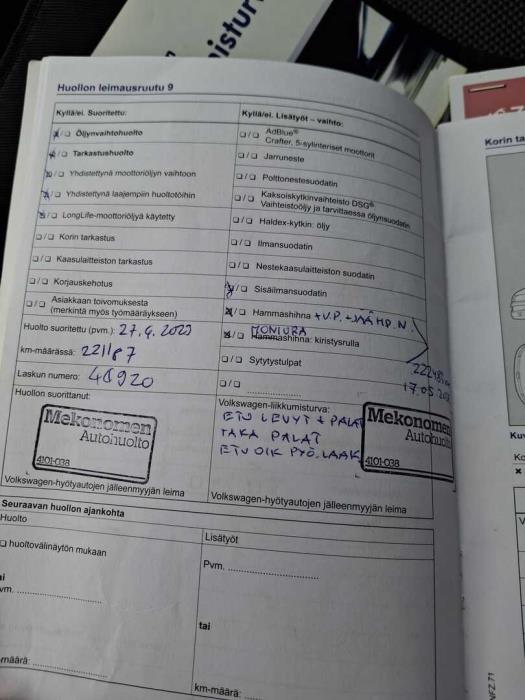 Huollon leimausruutu 9
Kyllä/ei. Suoritettu:
☒/☐ Öljynvaihtohuolto
☒/☐ Tarkastushuolto
☒/☐ Yhdistettynä moottoriöljyn vaihtoon
☒/☐ Yhdistettynä laajempiin huoltotöihin
☒/☐ LongLife-moottoriöljyä käytetty
☐/☐ Korin tarkastus
☐/☐ Kaasulaitteiston tarkastus
☐/☐ Korjauskehotus
☐/☐ Asiakkaan toivomuksesta
(merkintä myös työmääräykseen)
Huolto suoritettu (pvm.): 27.4.2023
km-määrässä: 221187
Laskun numero: 46920
Huollon suorittanut:
Mekonomen
Autohuolto
4101-038
Volkswagen-hyötyautojen jälleenmyyjän leima
Kyllä/ei. Lisätyöt – vaihto:
☐/☐ AdBlue®
Crafter, 5-sylinteriset moottorit
☐/☐ Jarruneste
☐/☐ Polttonestesuodatin
☐/☐ Kaksoiskytkinvaihteisto DSG®
Vaihteistoöljy ja tarvittaessa öljynsuodatin
☐/☐ Haldex-kytkin: öljy
☐/☐ Ilmansuodatin
☐/☐ Nestekaasulaitteiston suodatin
☒/☐ Sisäilmansuodatin
☒/☐ Hammashihna + V.P. + JÄÄHD.N.
MONIURA
☒/☐ Hammashihna: kiristysrulla
☐/☐ Sytytystulpat
17.05.
☐/☐
Volkswagen-liikkumisturva:
ETU LEVYT + PALAT
TAKA PALAT
ETU OIK PYÖ.LAAK
Mekonomen
Autohuolto
4101-038
Volkswagen-hyötyautojen jälleenmyyjän leima
Seuraavan huollon ajankohta
Huolto
☐ huoltovälinäytön mukaan
Lisätyöt
Pvm.
tai
km-määrä:
määrä:
Korin ta
NFZ.71